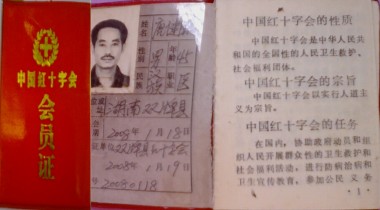 中国红十字会
会员证
姓名
性别 男 年龄
民族 汉 职业 医
湖南双牌县
2008年1月18日
双牌县红十字会
2008年1月19日
中国红十字会的性质
中国红十字会是中华人民共
和国的全国性的人民卫生救护、
社会福利团体。
中国红十字会的宗旨
中国红十字会以实行人道主
义为宗旨。
中国红十字会的任务
在国内，协助政府动员和组
织人民开展群众性的卫生救护和
社会福利活动，进行防病治病和
卫生宣传教育，参加公民义务
1